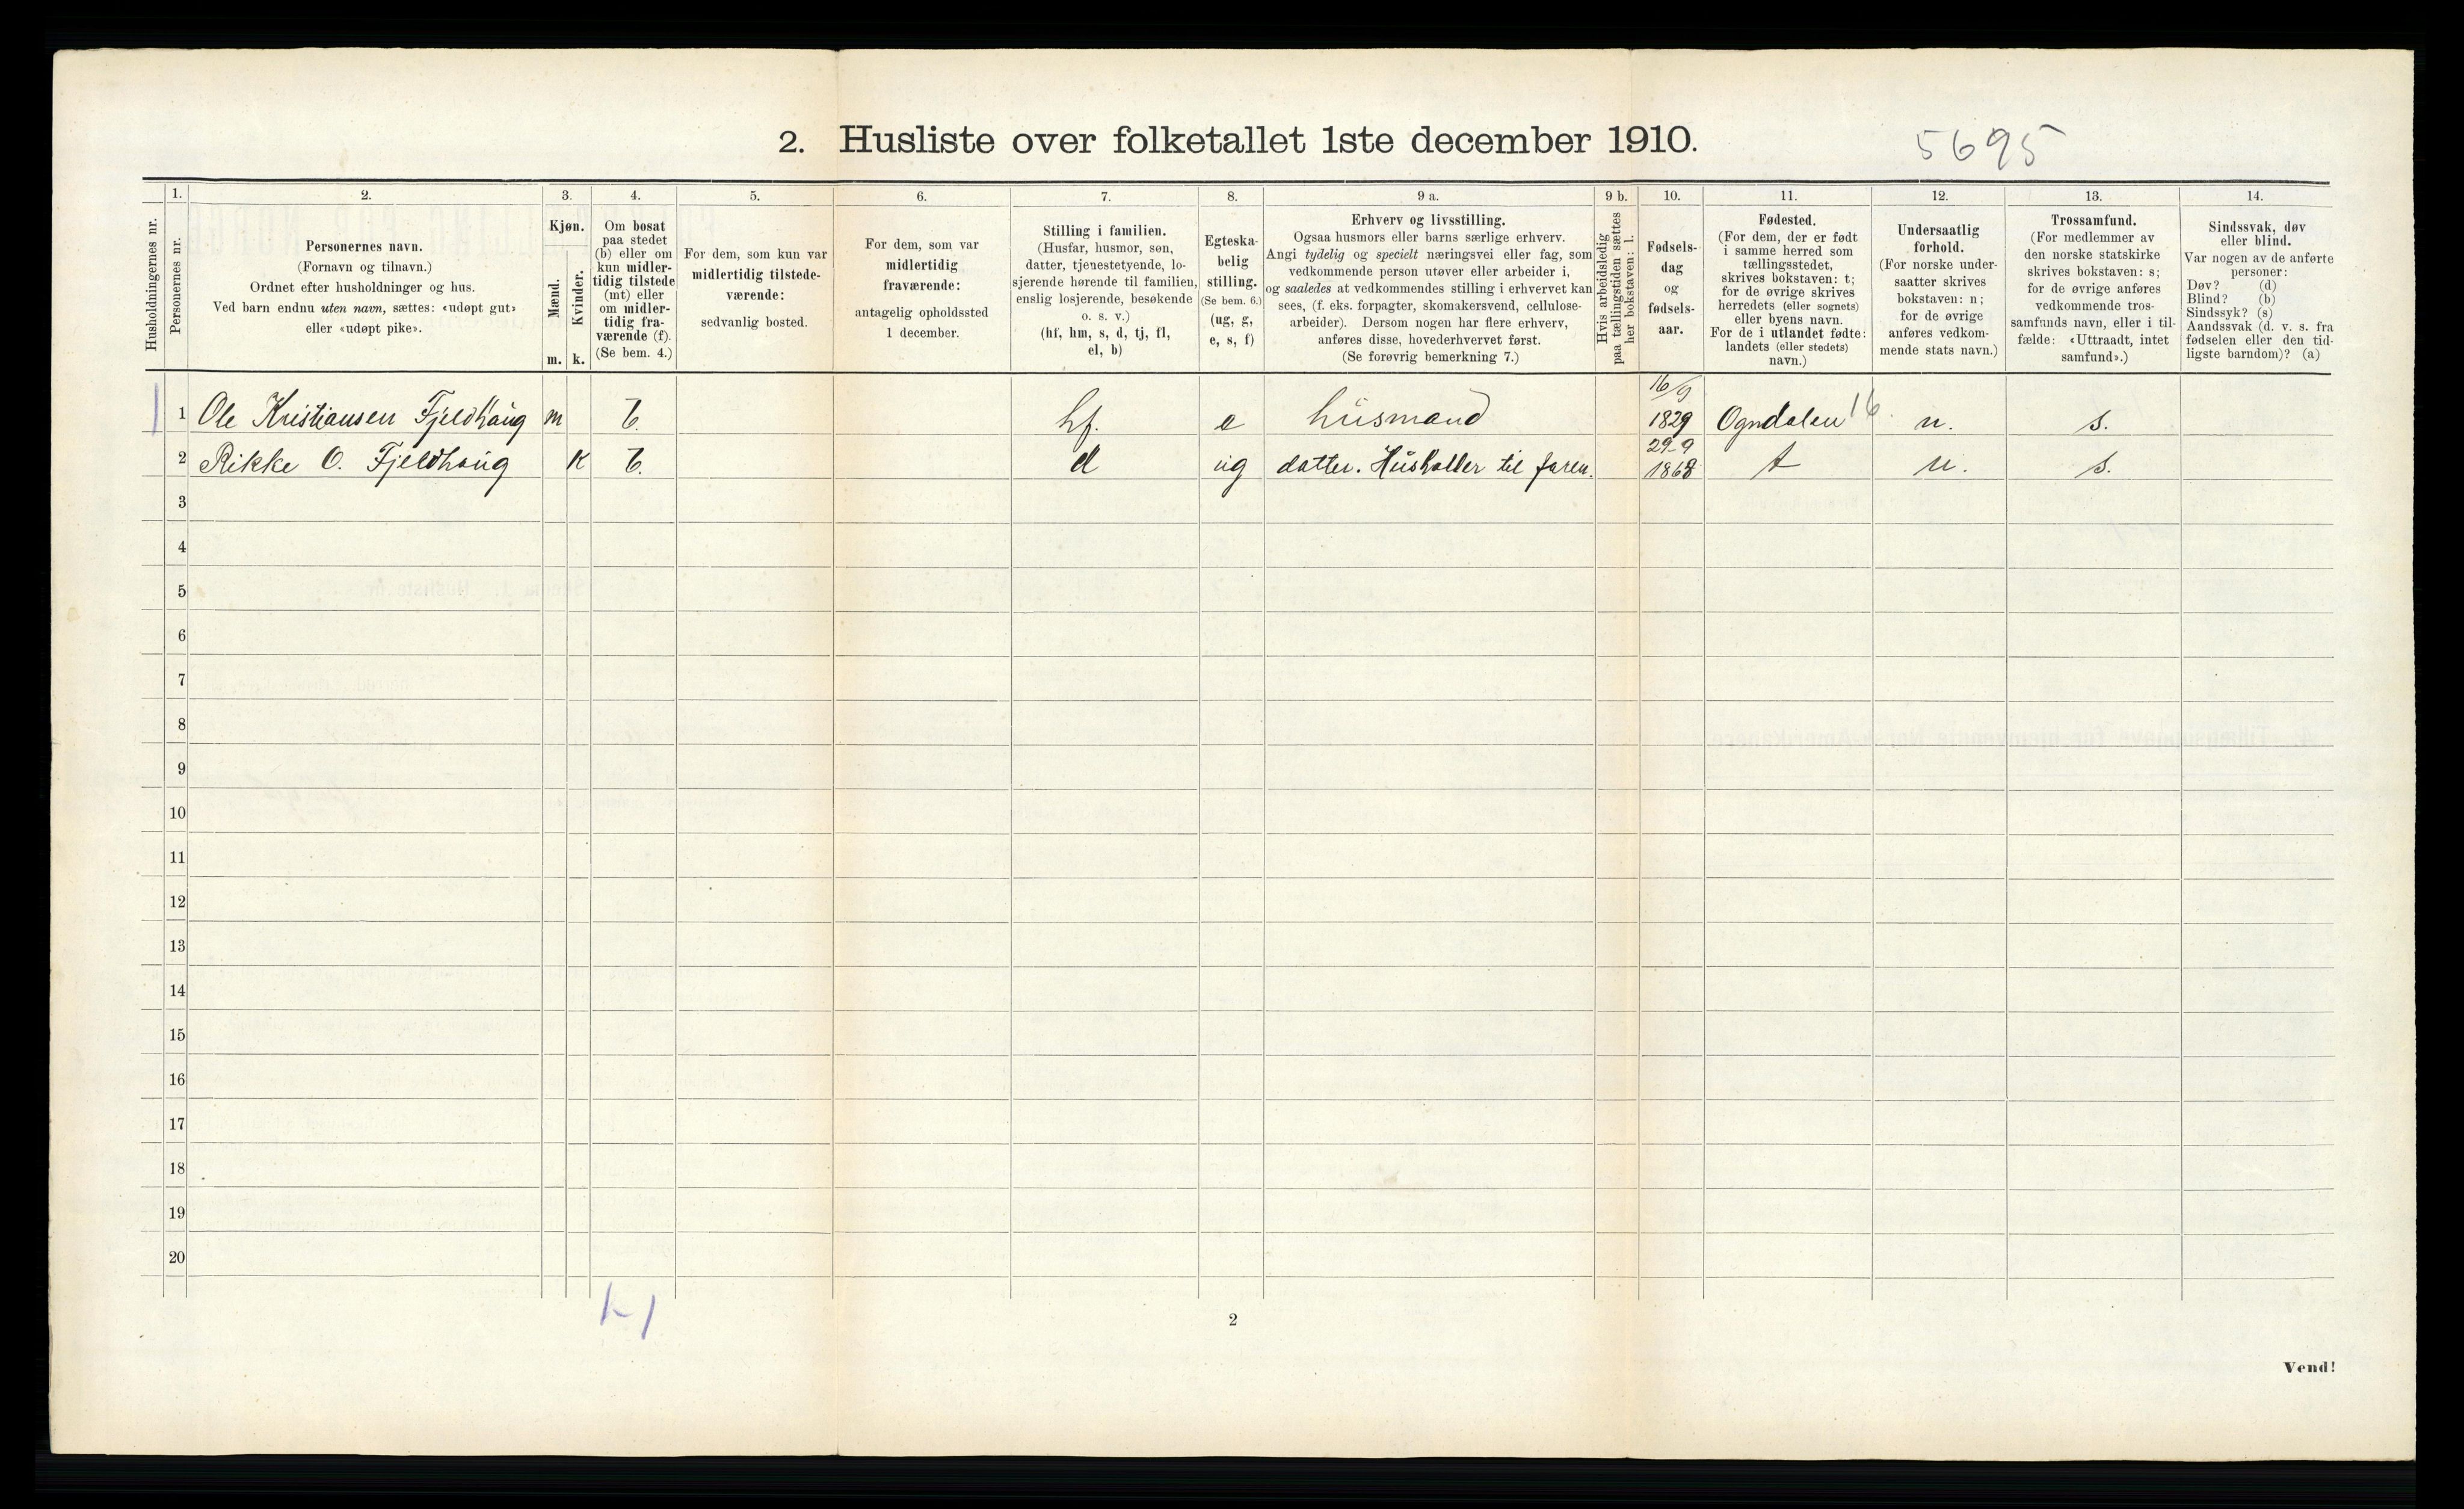 2. Husliste over folketallet 1ste december 1910.
5695
Husholdningernes nr.
1.
Personernes nr.
2.
Personernes navn.
(Fornavn og tilnavn.)
Ordnet efter husholdninger og hus.
Ved barn endnu uten navn, sættes: «udøpt gut»
eller «udøpt pike».
3.
Kjøn.
Mænd.
Kvinder.
m. k.
4.
Om bosat
paa stedet
(b) eller om
kun midler-
tidig tilstede
(mt) eller
om midler-
tidig fra-
værende (f).
(Se bem. 4.)
5.
For dem, som kun var
midlertidig tilstede-
værende:
sedvanlig bosted.
6.
For dem, som var
midlertidig
fraværende:
antagelig opholdssted
1 december.
7.
Stilling i familien.
(Husfar, husmor, søn,
datter, tjenestetyende, lo-
sjerende hørende til familien,
enslig losjerende, besøkende
o. s. v.)
(hf, hm, s, d, tj, fl,
el, b)
8.
Egteska-
belig
stilling.
(Se bem. 6.)
(ug, g,
e, s, f)
9 a.
Erhverv og livsstilling.
Ogsaa husmors eller barns særlige erhverv.
Angi tydelig og specielt næringsvei eller fag, som
vedkommende person utøver eller arbeider i,
og saaledes at vedkommendes stilling i erhvervet kan
sees, (f. eks. forpagter, skomakersvend, cellulose-
arbeider). Dersom nogen har flere erhverv,
anføres disse, hovederhvervet først.
(Se forøvrig bemerkning 7.)
9 b.
Hvis arbeidsledig
paa tællingstiden sættes
her bokstaven: l.
10.
Fødsels-
dag
og
fødsels-
aar.
11.
Fødested.
(For dem, der er født
i samme herred som
tællingsstedet,
skrives bokstaven: t;
for de øvrige skrives
herredets (eller sognets)
eller byens navn.
For de i utlandet fødte:
landets (eller stedets)
navn.)
12.
Undersaatlig
forhold.
(For norske under-
saatter skrives
bokstaven: n;
for de øvrige
anføres vedkom-
mende stats navn.)
13.
Trossamfund.
(For medlemmer av
den norske statskirke
skrives bokstaven: s;
for de øvrige anføres
vedkommende tros-
samfunds navn, eller i til-
fælde: «Uttraadt, intet
samfund».)
14.
Sindssvak, døv
eller blind.
Var nogen av de anførte
personer:
Døv? (d)
Blind? (b)
Sindssyk? (s)
Aandssvak (d. v. s. fra
fødselen eller den tid-
ligste barndom)? (a)
16/9
1 1 Ole Kristiansen Fjeldhaug m b. hf. e husmand 1829 Ogndalen 16. n. s.
29-9
2 Rikke O. Fjeldhaug K b. d ug datter. Husholder til faren. 1868 t n. s.
3
4
5
6
7
8
9
10
11
12
13
14
15
16
17
18
19
20
2
Vend!